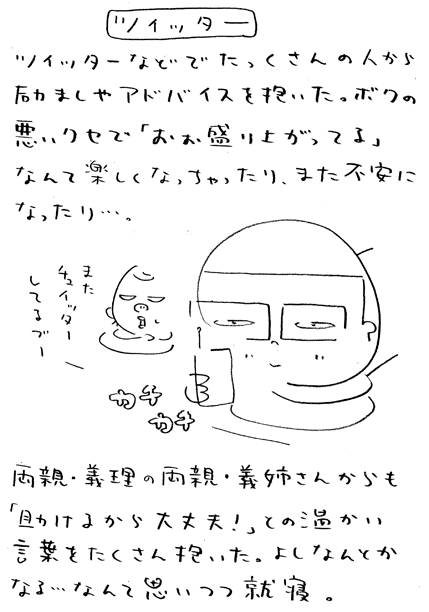 ツイッター
ツイッターなどでたっくさんの人から
励ましやアドバイスを抱いた。ボクの
悪いクセで「おぉ盛り上がってる」
なんて楽しくなっちゃったり、また不安に
なったり…。
また
チュイッター
してるブー
カチ
カチ
両親・義理の両親・義姉さんからも
「助けるから大丈夫!」との温かい
言葉をたくさん抱いた。よしなんとか
なる…なんて思いつつ就寝。